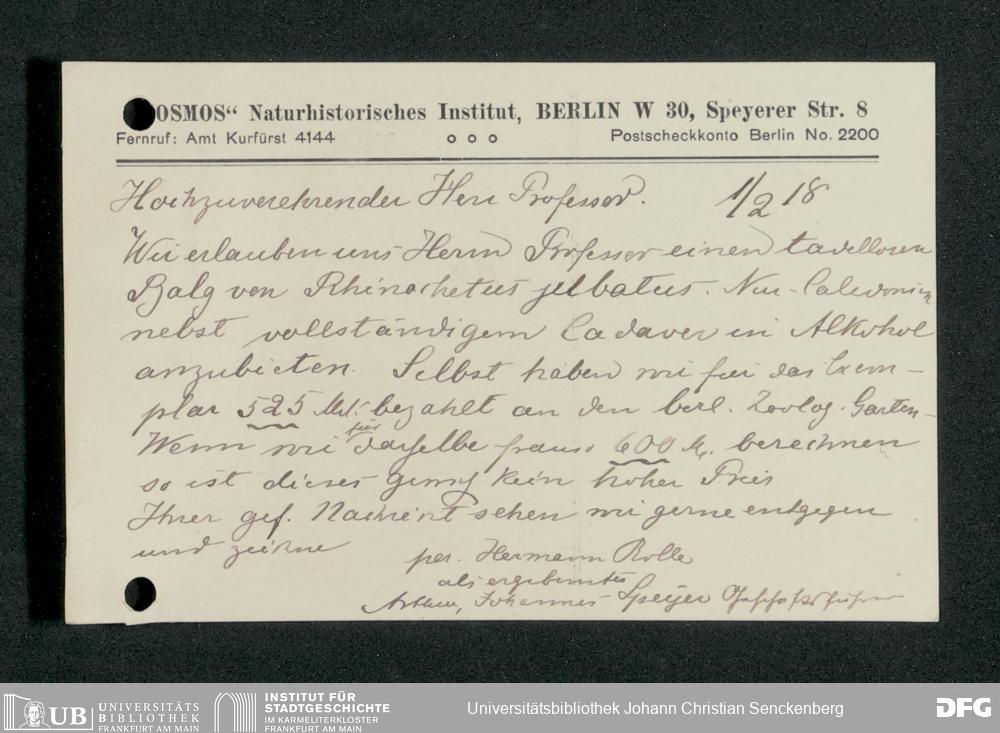 OSMOS“ Naturhistorisches Institut, BERLIN W 30, Speyerer Str. 8
Fernruf: Amt Kurfürst 4144 o o o Postscheckkonto Berlin No. 2200
Hochzuverehrender Herr Professor. 1/2 18
Wir erlauben uns Herrn Professor einen tadellosen
Balg von Rhinochetus jubatus. Neu-Caledonien
nebst vollständigem Cadaver in Alkohol
anzubieten. Selbst haben wir für das Exem-
plar 525 Mk. bezahlt an den berl. Zoolog. Garten
Wenn wir für dasselbe 600 M. berechnen
so ist dieses gewiß kein hoher Preis
Ihrer gef. Nachricht sehen wir gerne entgegen
und zeichne per. Hermann Rolle
als ergebenster
Arthur, Johannes Speyer Geschäftsführer
UB UNIVERSITÄTS BIBLIOTHEK FRANKFURT AM MAIN
INSTITUT FÜR STADTGESCHICHTE IM KARMELITERKLOSTER FRANKFURT AM MAIN
Universitätsbibliothek Johann Christian Senckenberg
DFG